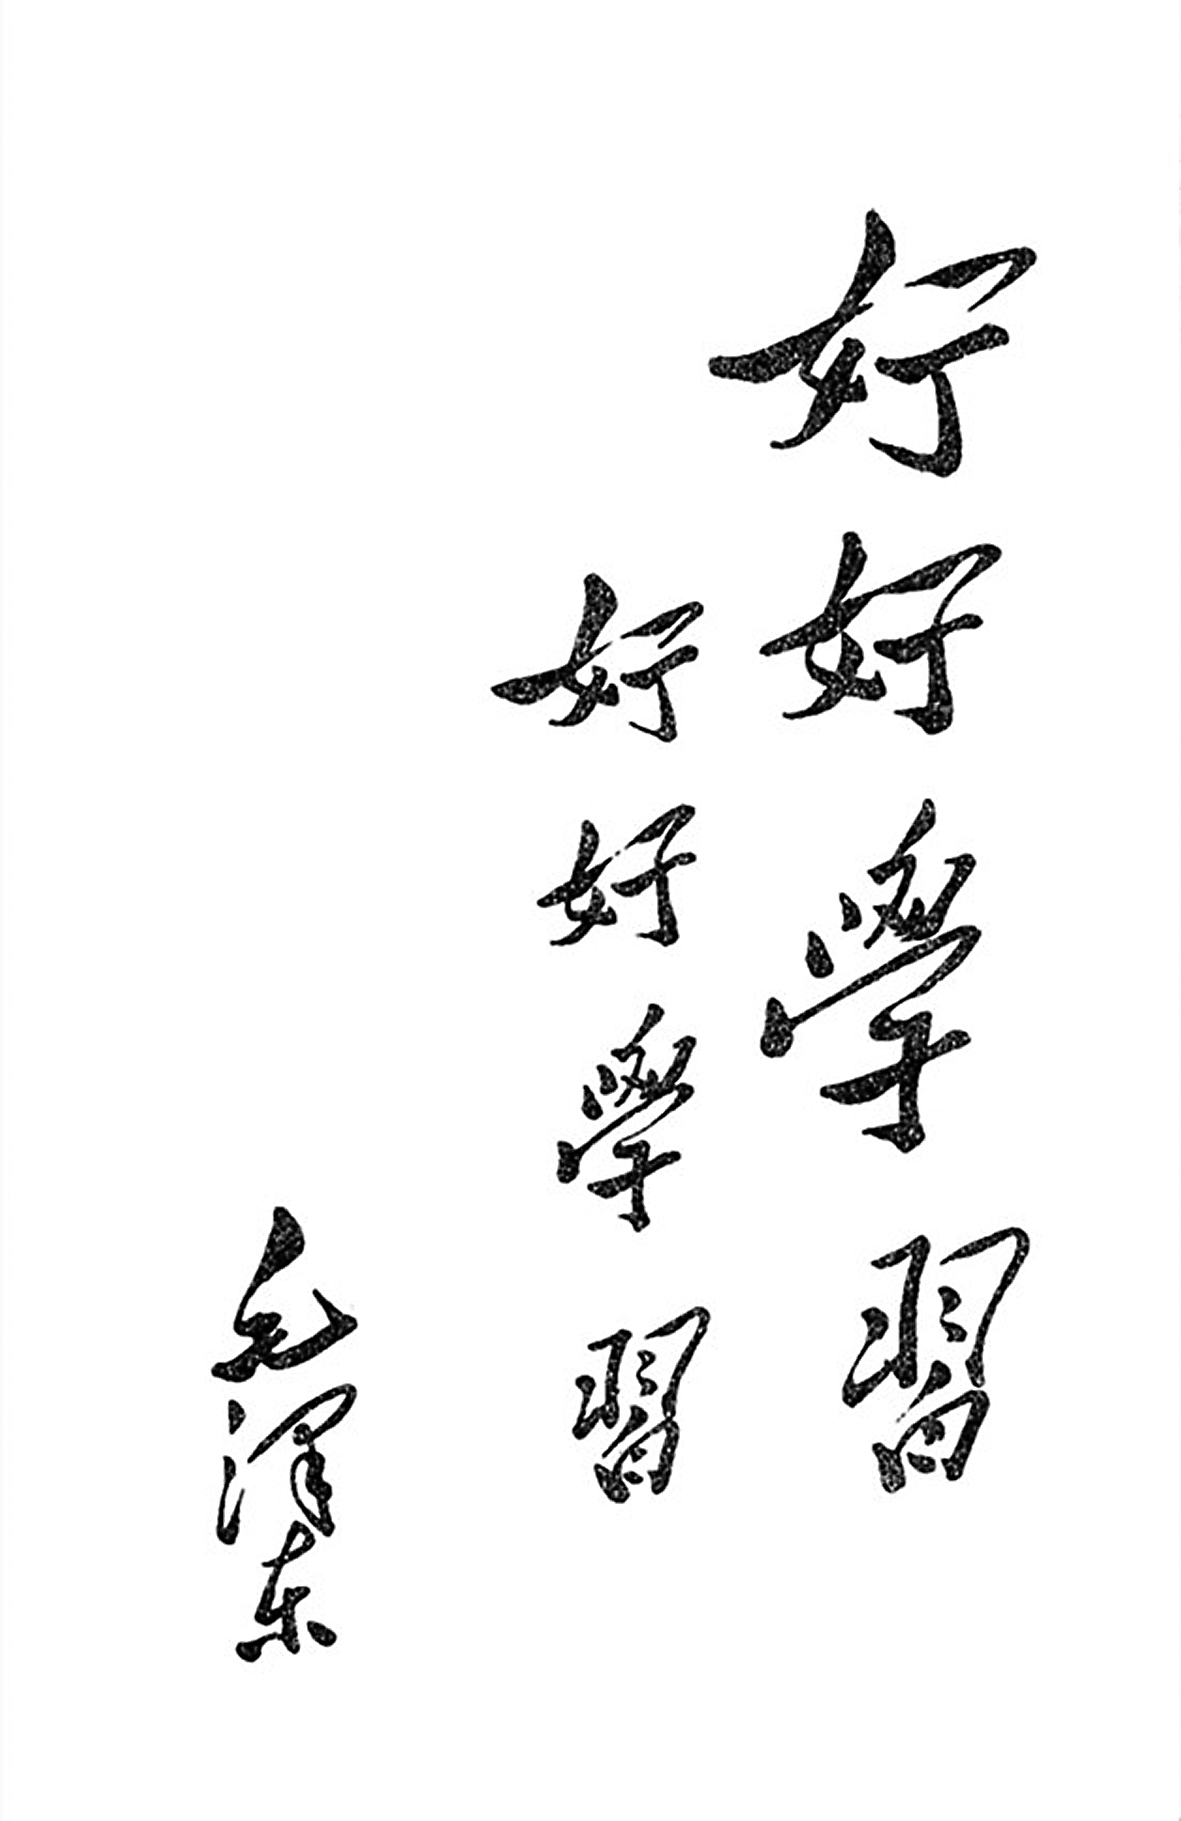 好好學習
好好學習
毛澤东